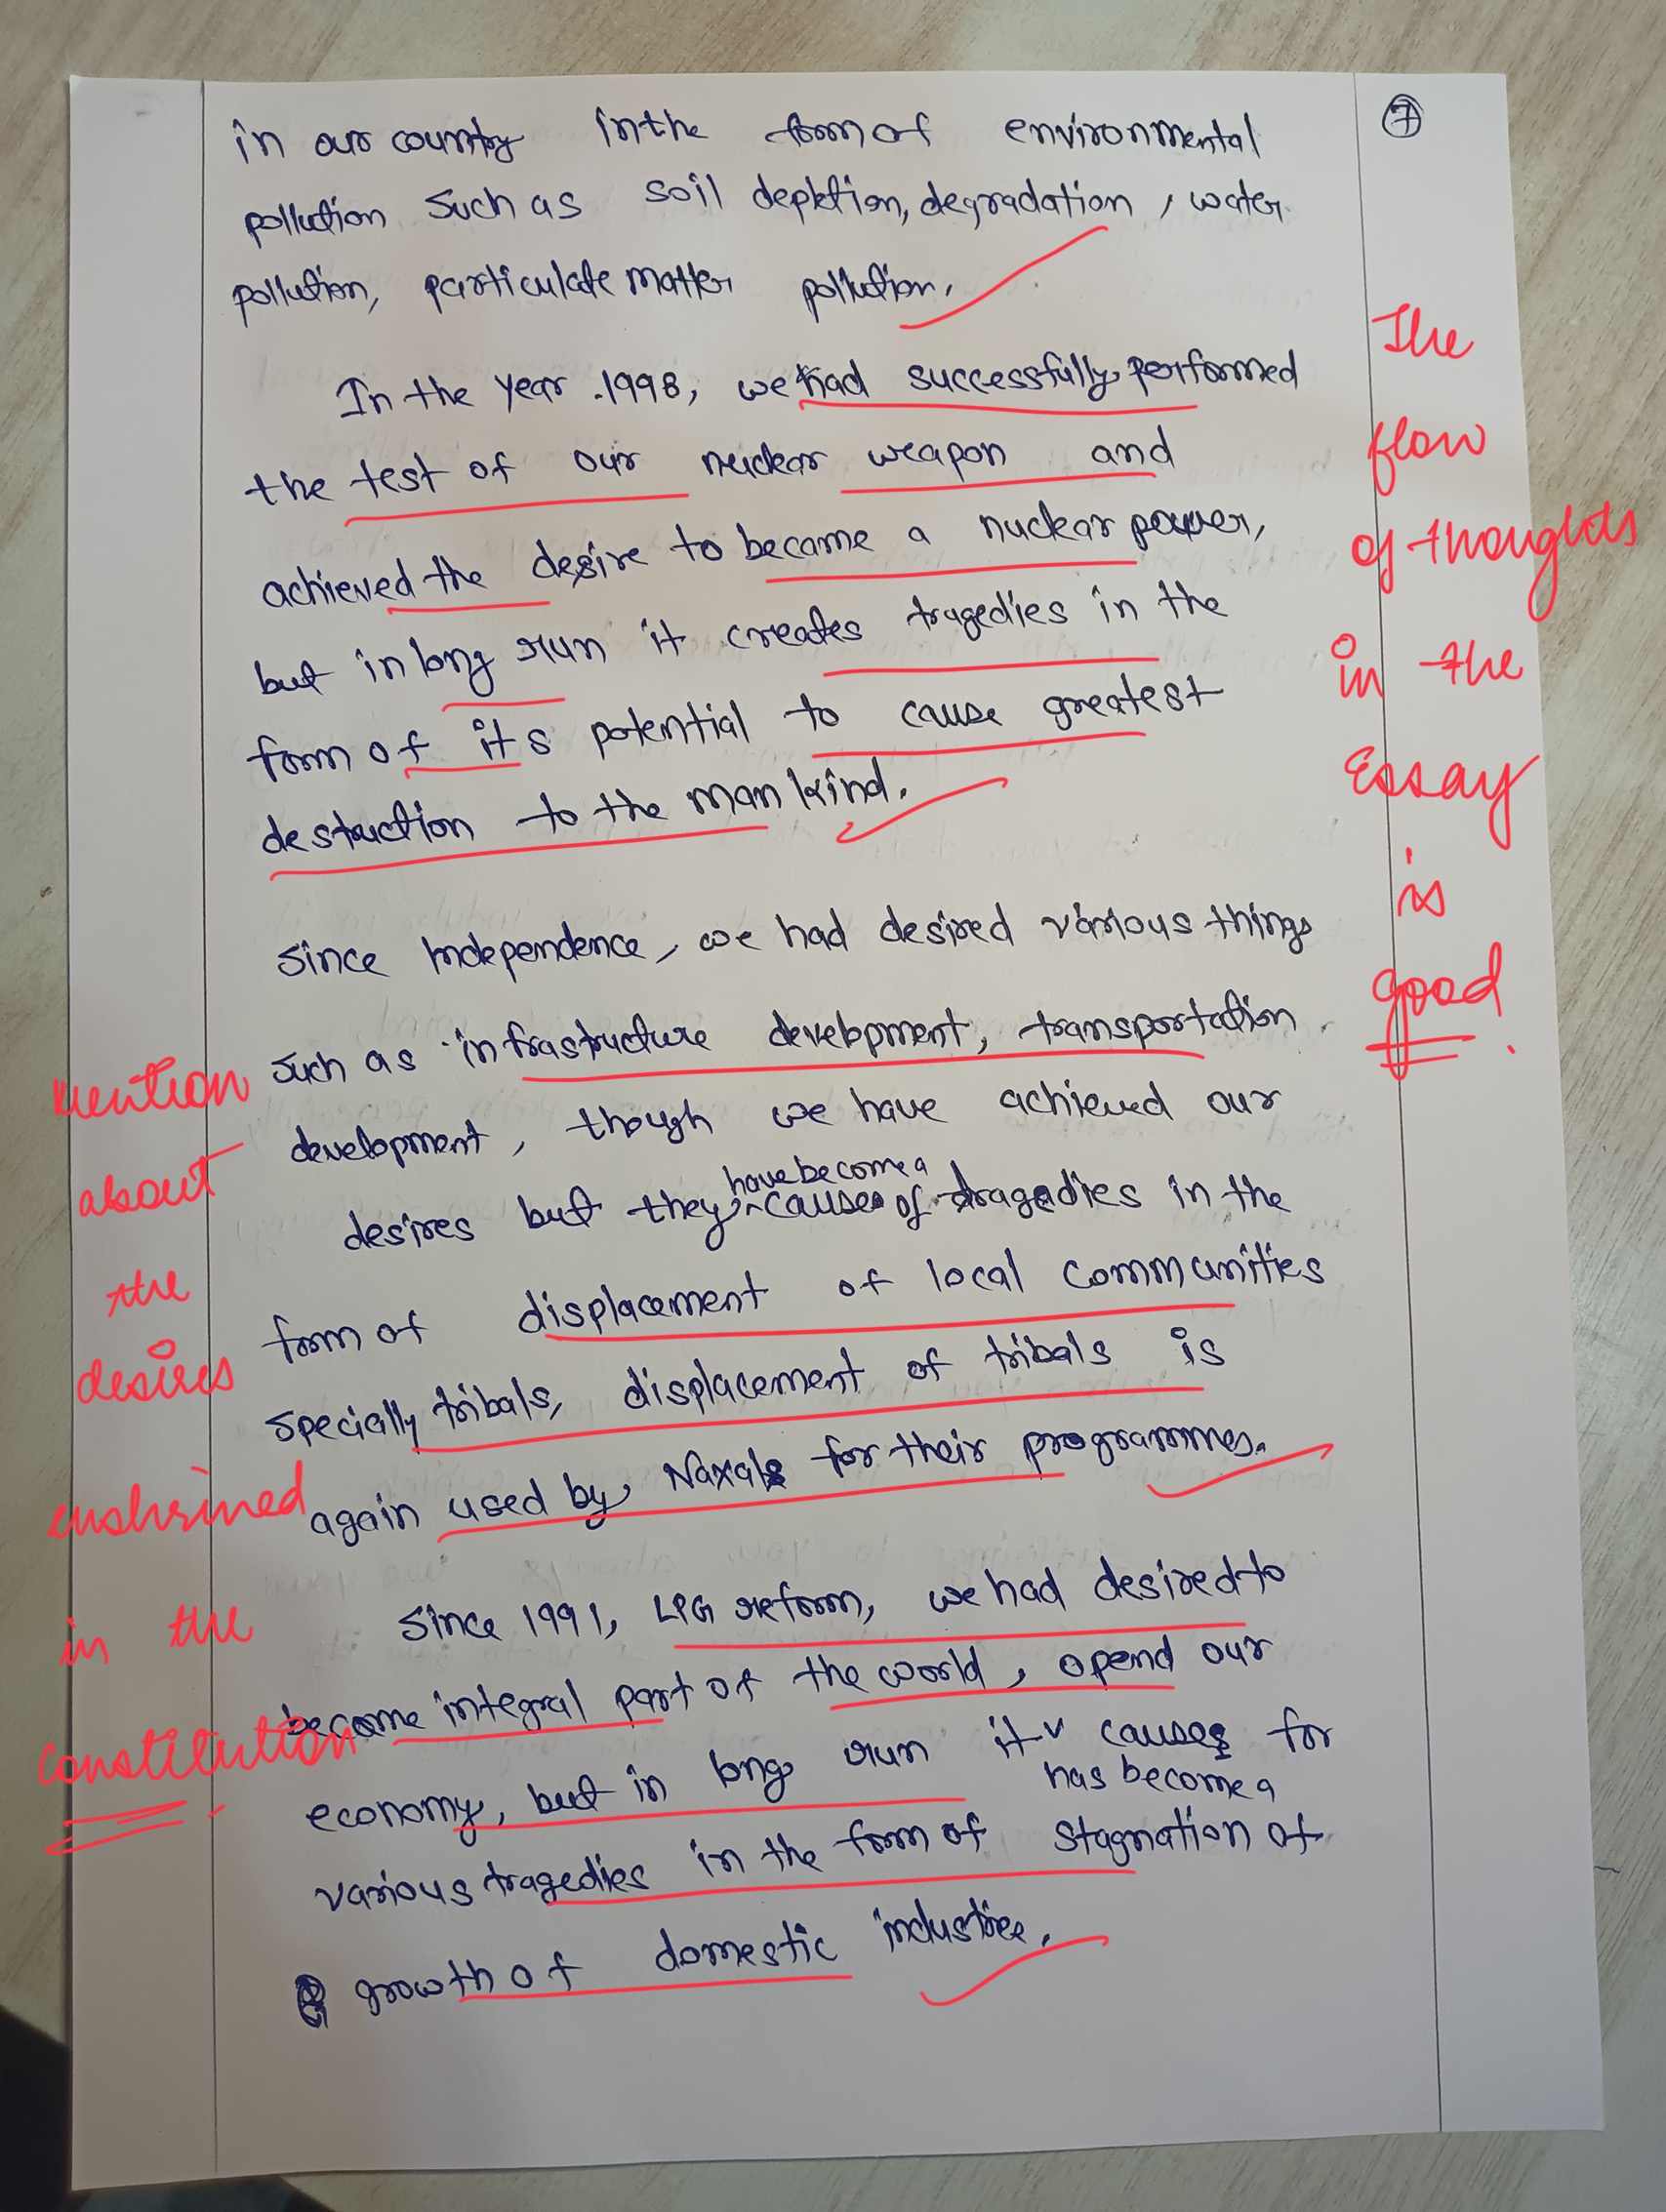 7
in our country in the form of environmental
pollution such as soil depletion, degradation, water
pollution, particulate matter pollution.
In the year 1998, we had successfully performed
the test of our nuclear weapon and
achieved the desire to became a nuclear power,
but in long run it creates tragedies in the
form of its potential to cause greatest
destruction to the man kind.
Since Independence, we had desired various things
such as infrastructure development, transportation
development, though we have achieved our
have become a
desires but they causes of tragedies in the
form of displacement of local communities
specially tribals, displacement of tribals is
again used by Naxals for their programmes.
Since 1991, LPG reform, we had desired to
become integral part of the world, opend our
economy, but in long run it causes for
has become a
various tragedies in the form of stagnation of
growth of domestic industries.
The
flow
of thoughts
in the
Essay
is
good.
Mention
about
the
desires
enshrined
in the
constitution.